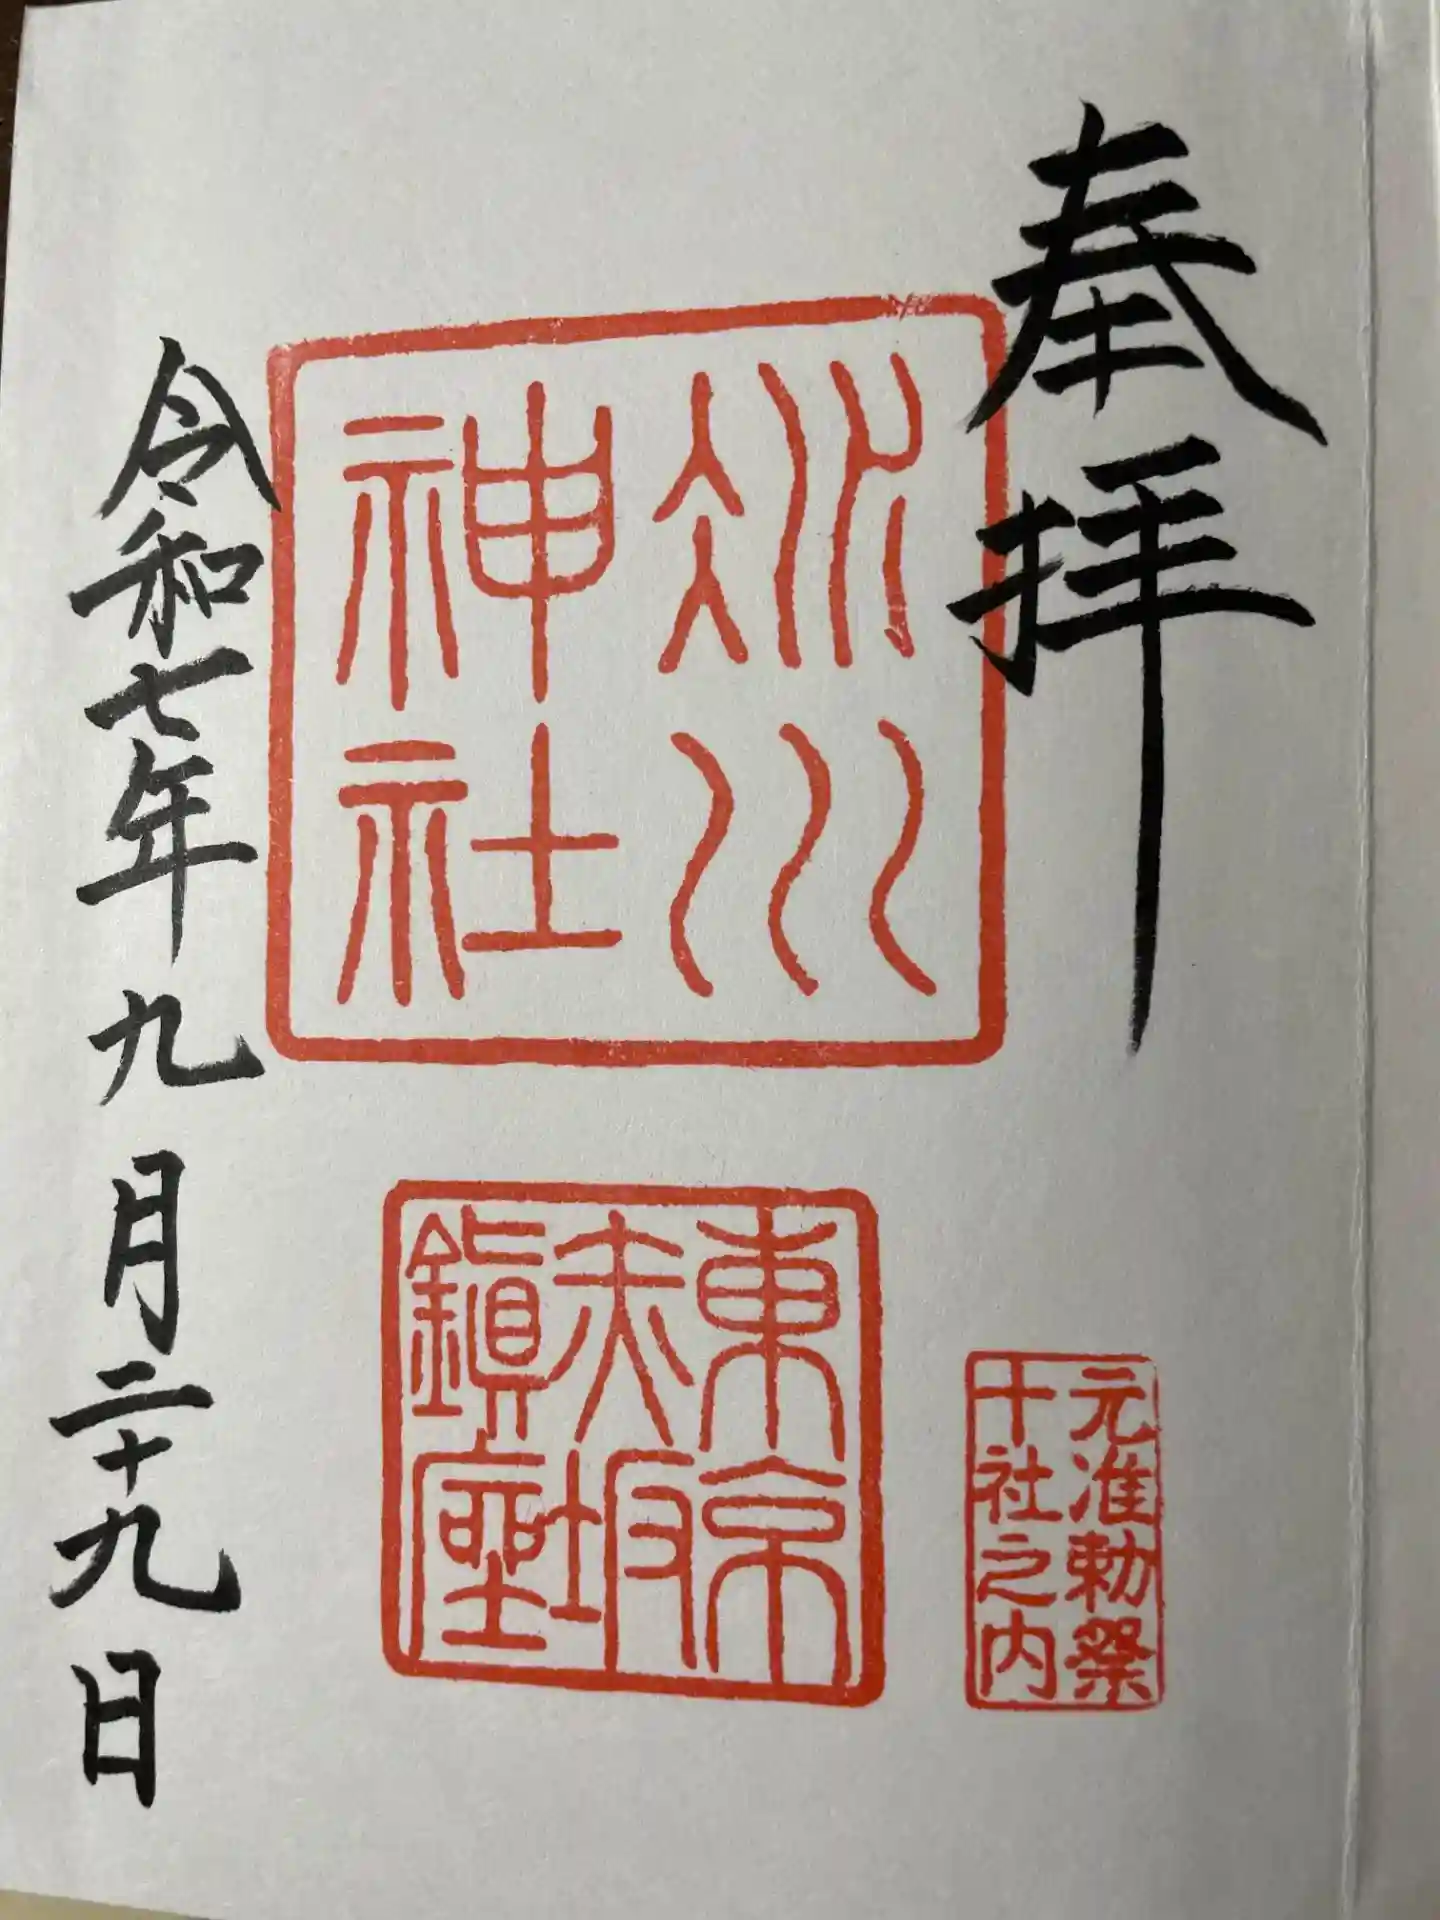 奉拝
氷川
神社
東京
赤坂
鎭座
元准勅祭
十社之内
令和七年九月二十九日